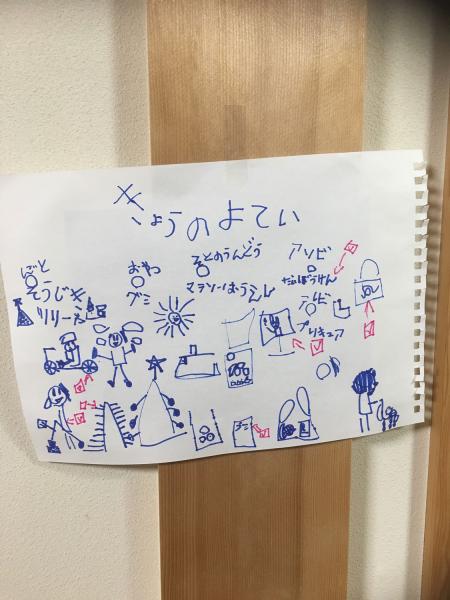 きょうのよてい
しごと
そうじき
リリーえ
おやつ
グミ
そとのうんどう
マラソンおうえん
アソビ
だいぼうけん
テレビ
プリキュア
チョコ